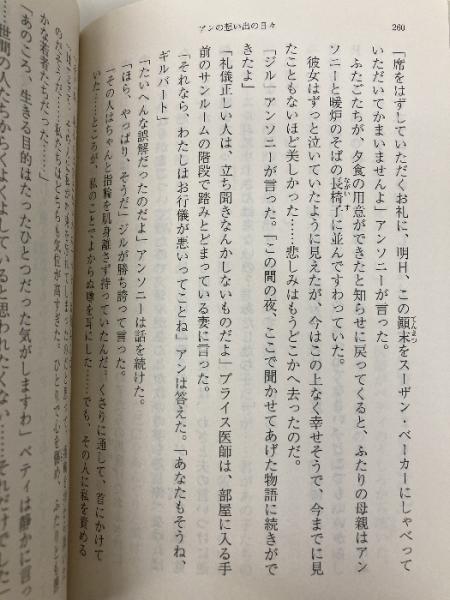 アンの想い出の日々
260
「席をはずしていただくお礼に、明日、この顛末をスーザン・ベーカーにしゃべって
いただいてかまいませんよ」アンソニーが言った。
ふたごたちが、夕食の用意ができたと知らせに戻ってくると、ふたりの母親はアン
ソニーと暖炉のそばの長椅子に並んですわっていた。
彼女はずっと泣いていたように見えたが、今はこの上なく幸せそうで、今までに見
たこともないほど美しかった……悲しみはもうどこかへ去ったのだ。
「ジル」アンソニーが言った。「この間の夜、ここで聞かせてあげた物語に続きが
「礼儀正しい人は、立ち聞きなんかしないものだよ」ブライス医師は、部屋に入る手
前のサンルームの階段で踏みとどまっている妻に言った。
「それなら、わたしはお行儀が悪いってことね」アンは答えた。「あなたもそうね、
ギルバート」
「たいへんな誤解だったのだよ」アンソニーは話を続けた。
「ほら、やっぱり、そうだ」ジルが勝ち誇って言った。
「その人はちゃんと指輪を肌身離さず持っていたんだ、くさりに通して、首にかけて
いた……ところが、私のことでよからぬ噂を耳にした……でも、その人に私を責める
「あのころ、生きる目的はたったひとつだった気がしますわ」ベティは静かに言っ
……世間の人たちからくよくよしていると思われたくない……それだけでした」